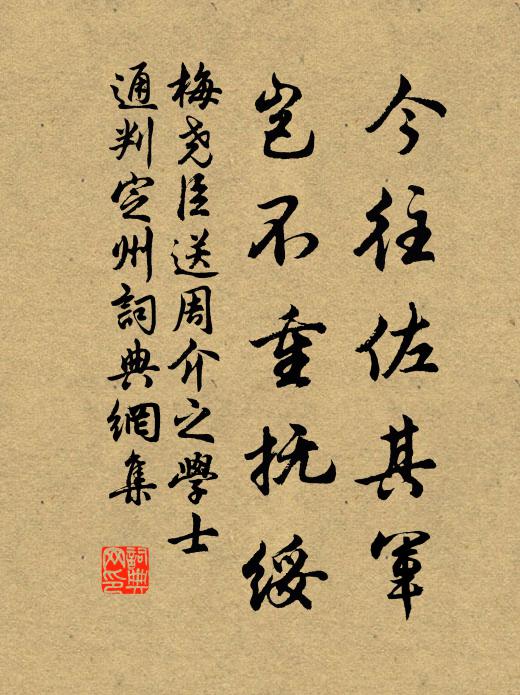 今往佐其軍
岂不重抚綏
梅尧臣送周介之學士
通判定州詞典網集
詞典网印